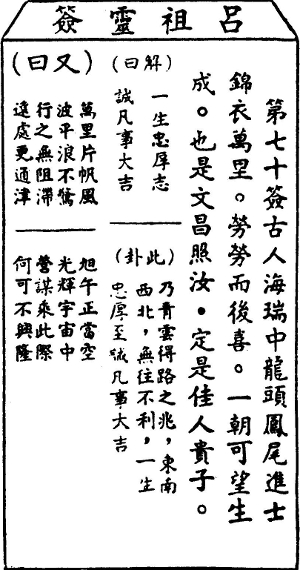 呂祖靈簽
第七十簽古人海瑞中龍頭鳳尾進士
錦衣萬里。勞勞而後喜。一朝可望生
成。也是文昌照汝。定是佳人貴子。
(解曰)
一生忠厚志
誠凡事大吉
(此卦)
乃青雲得路之兆，東南
西北，無往不利，一生
忠厚至誠凡事大吉
(又曰)
萬里片帆風
波平浪不驚
行之無阻滯
遠處更通津
旭午正當空
光輝宇宙中
營謀乘此際
何可不興隆